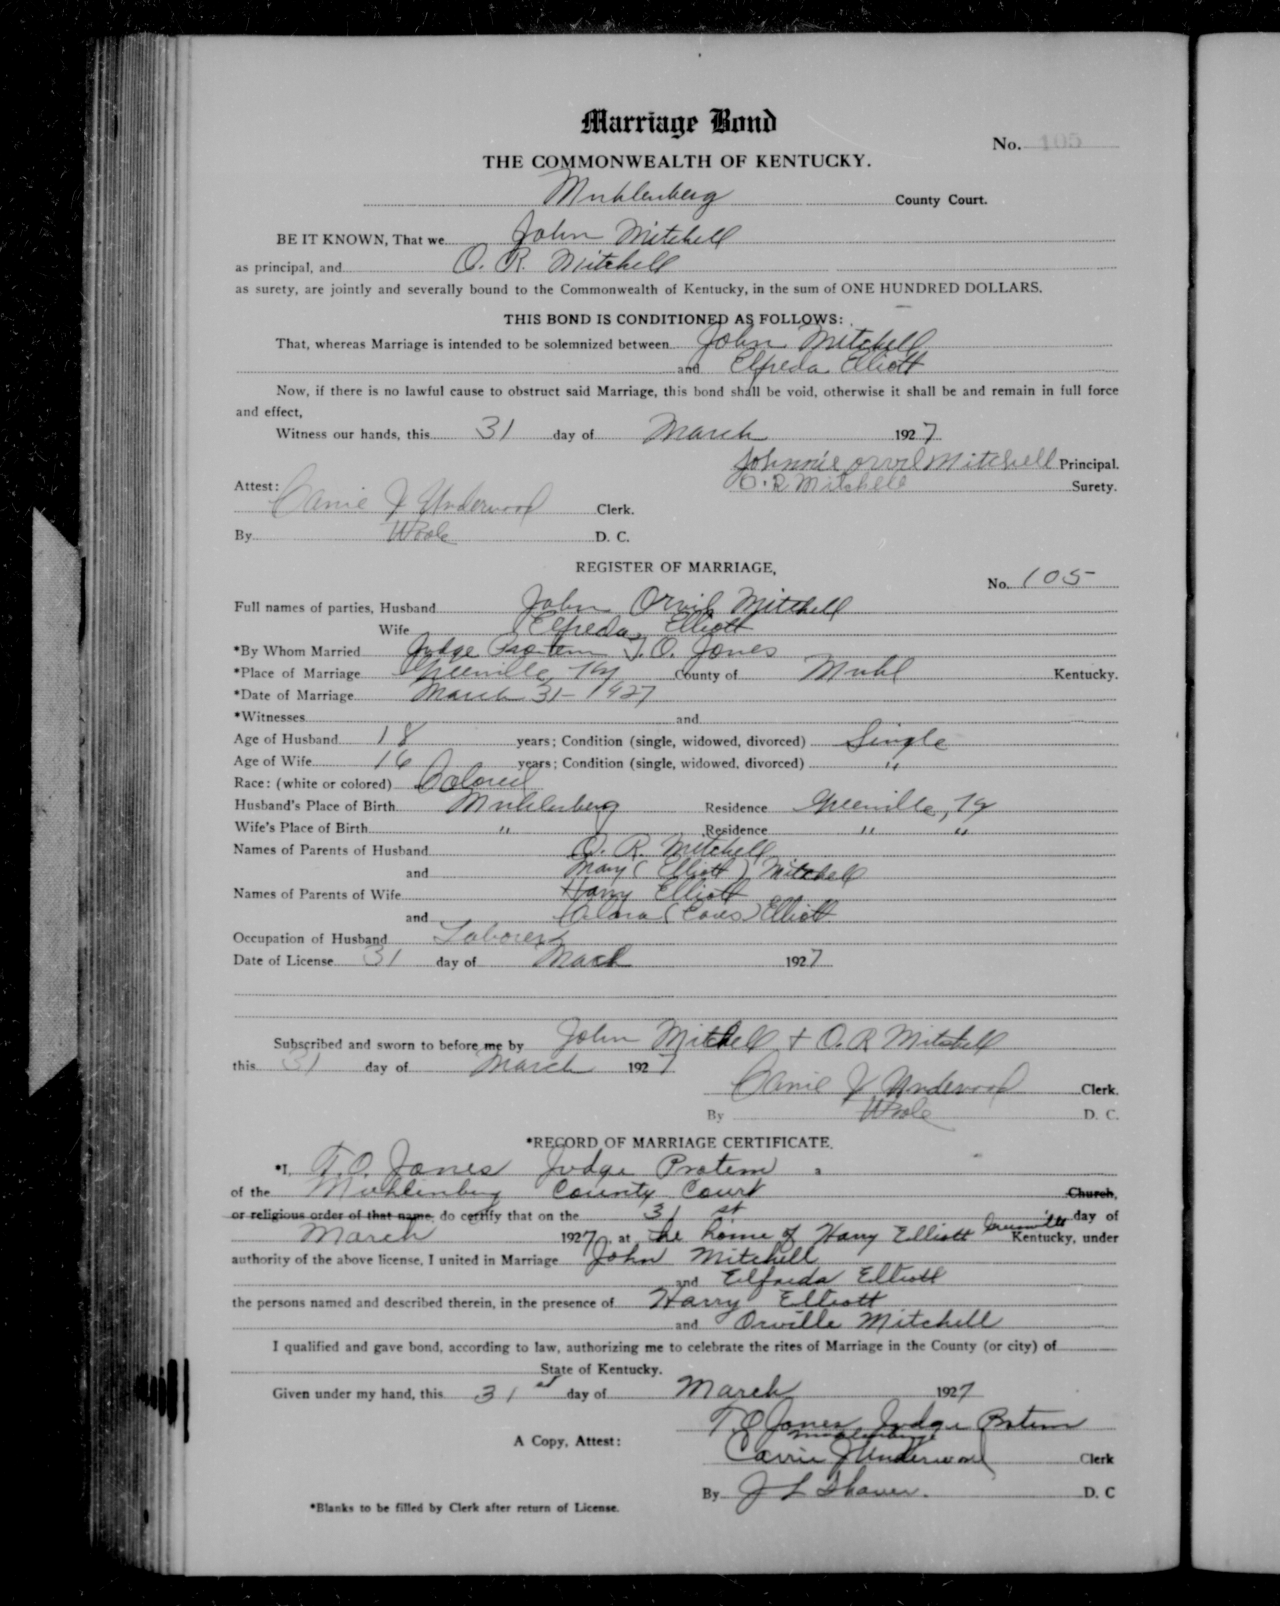 Marriage Bond
No. 105
THE COMMONWEALTH OF KENTUCKY.
Muhlenberg County Court.
BE IT KNOWN, That we John Mitchell
as principal, and O. R. Mitchell
as surety, are jointly and severally bound to the Commonwealth of Kentucky, in the sum of ONE HUNDRED DOLLARS.
THIS BOND IS CONDITIONED AS FOLLOWS:
That, whereas Marriage is intended to be solemnized between John Mitchell
and Elfreda Elliott
Now, if there is no lawful cause to obstruct said Marriage, this bond shall be void, otherwise it shall be and remain in full force
and effect,
Witness our hands, this 31 day of March 1927
Johnnie orvil Mitchell Principal.
Attest: O. R. Mitchell Surety.
Carrie J Underwood Clerk.
By D. C.
REGISTER OF MARRIAGE,
No. 105
Full names of parties, Husband John Orvil Mitchell
Wife Elfreda Elliott
*By Whom Married Judge Protem T. O. Jones
*Place of Marriage Greenville, Ky County of Muhl Kentucky.
*Date of Marriage March 31- 1927
*Witnesses and
Age of Husband 18 years; Condition (single, widowed, divorced) Single
Age of Wife 16 years; Condition (single, widowed, divorced) "
Race: (white or colored) Colored
Husband's Place of Birth Muhlenberg Residence Greenville, Ky
Wife's Place of Birth " Residence " "
Names of Parents of Husband O. R. Mitchell
and Mary (Elliott) Mitchell
Names of Parents of Wife Harry Elliott
and (Eaves) Elliott
Occupation of Husband Laborer
Date of License 31 day of March 1927
Subscribed and sworn to before me by John Mitchell & O. R Mitchell
this 31 day of March 1927
Carrie J Underwood Clerk.
By D. C.
*RECORD OF MARRIAGE CERTIFICATE.
*I, T. O. Jones Judge Protem
of the Muhlenburg County Court Church,
or religious order of that name, do certify that on the 31 st day of
March 1927, at the home of Harry Elliott Greenville Kentucky, under
authority of the above license, I united in Marriage John Mitchell
and Elfreda Elliott
the persons named and described therein, in the presence of Harry Elliott
and Orville Mitchell
I qualified and gave bond, according to law, authorizing me to celebrate the rites of Marriage in the County (or city) of
State of Kentucky.
Given under my hand, this 31 st day of March 1927
T O Jones, Judge Protem
A Copy, Attest:
Carrie J Underwood Clerk
By J L Shaver. D. C
*Blanks to be filled by Clerk after return of License.